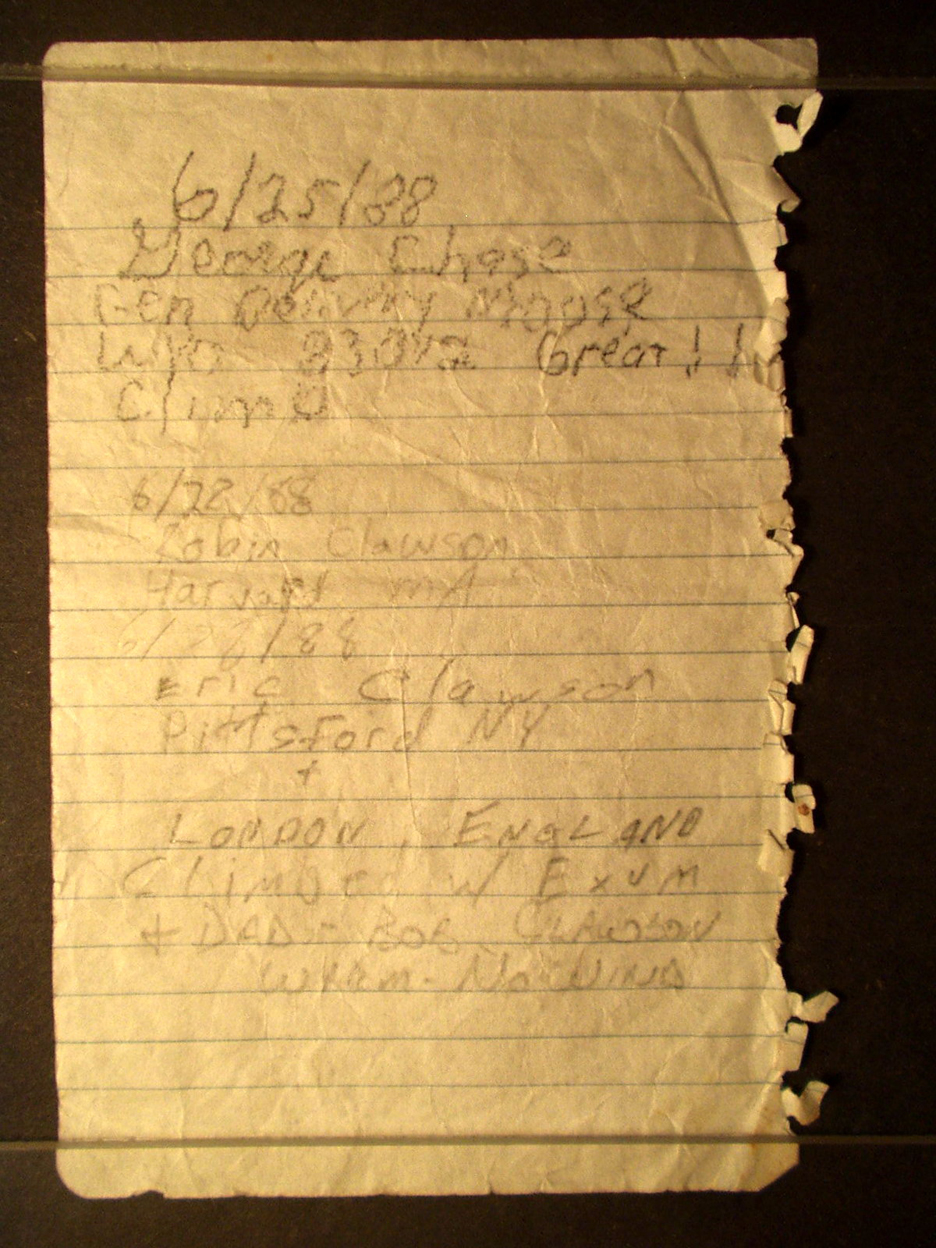 6/25/88
George Chase
Gen Delivery Moose
Wyo 83012 Great!!
Climb
6/28/88
Robin Clawson
Harvard MA
6/28/88
Eric Clawson
Pittsford NY
+
LONDON, ENGLAND
Climbed w/ Exum
+ DAD - BOB CLAWSON
WARM - NO WIND